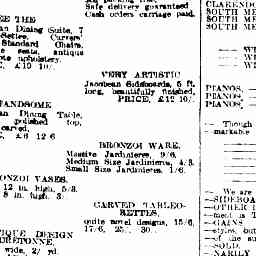 EE THE
an Dining Suite, 7
Settee, Carvers'
Standard Chairs,
seats, antique
upholstery.
£10 10/.
ANDSOME
an Dining Table,
polished top,
carved.
£6 12 6
ONZOI VASES.
12 in. high, 5/3.
8 in. high, 3
IQUE DESIGN
URETONNE.
wide, 2/ yd.
Safe delivery guaranteed
Cash orders carriage paid.
VERY ARTISTIC
Jacobean Sideboards, 5 ft.
long, beautifully finished,
PRICE, £12 10/.
BRONZOI WARE.
Massive Jardinieres, 9/6.
Medium Size Jardinieres, 4/3.
Small Size Jardinieres, 1/6.
CARVED TABLEO-
RETTES,
quite novel designs, 15/6,
17/6, 25/, 30/.
CLARENDO
SOUTH ME
SOUTH ME
SOUTH ME
WI
WI
WI
PIANOS,
PIANOS,
PIANOS,
Though
markable
We are
SIDEBOA
OTHER I
ment is T
GAINS
styles, but
of the su
SOLD.
NARILY